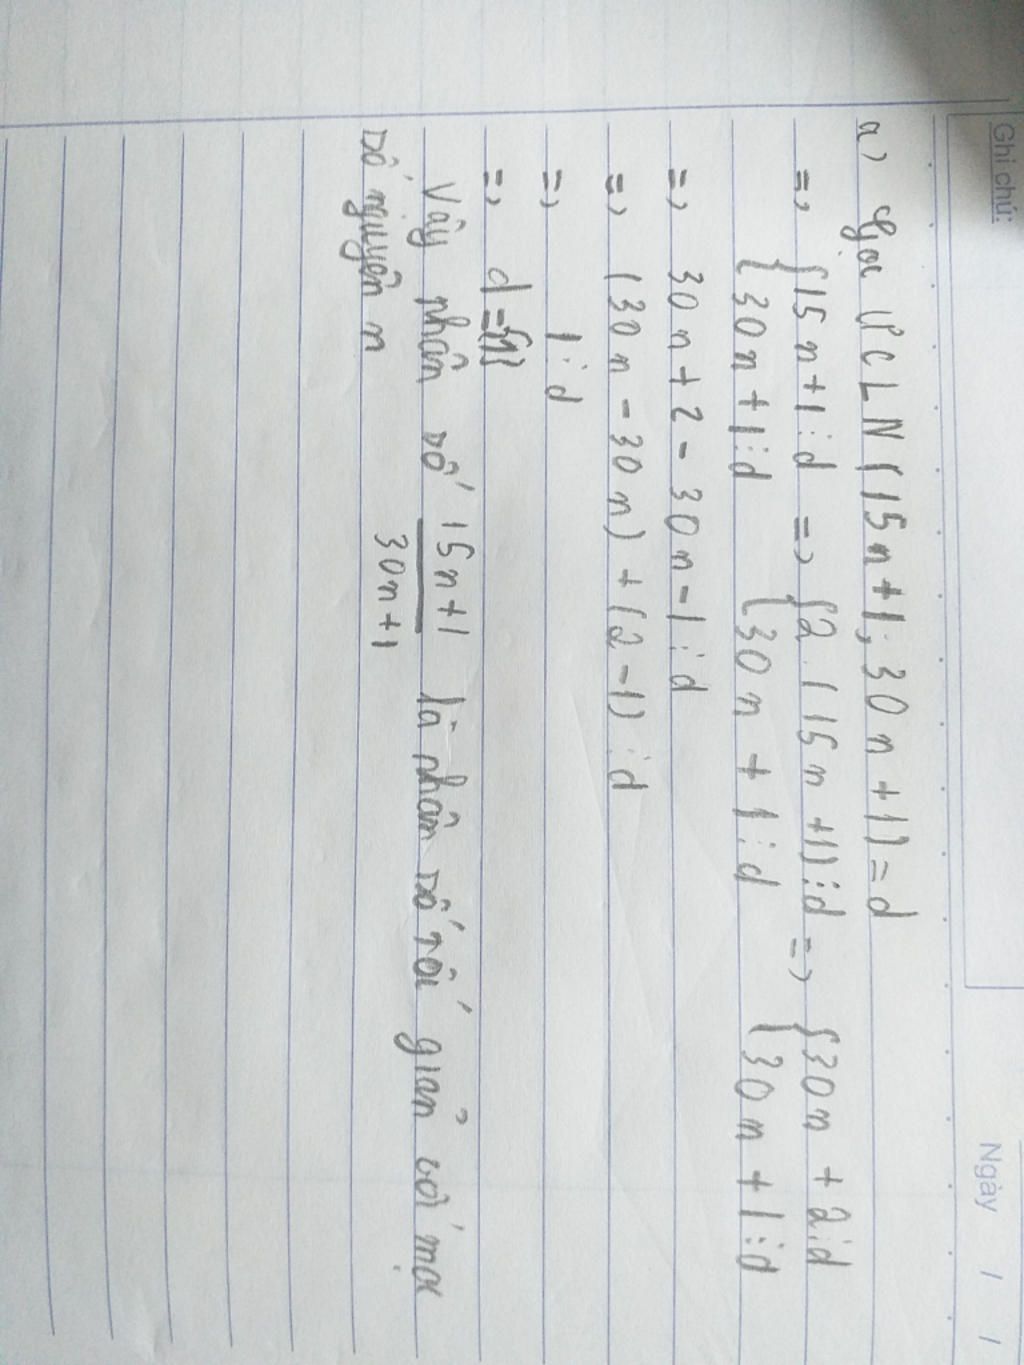 Ghi chú:
Ngày / /
a) Gọi ƯCLN(15n+1; 30n+1)=d
=> {15n+1⋮d => {2.(15n+1)⋮d => {30n+2⋮d
{30n+1⋮d {30n+1⋮d {30n+1⋮d
=> 30n+2-30n-1⋮d
=> (30n-30n)+(2-1)⋮d
=> 1⋮d
=> d={1}
Vậy phân số 15n+1 là phân số tối giản với mọi
30n+1
số nguyên n